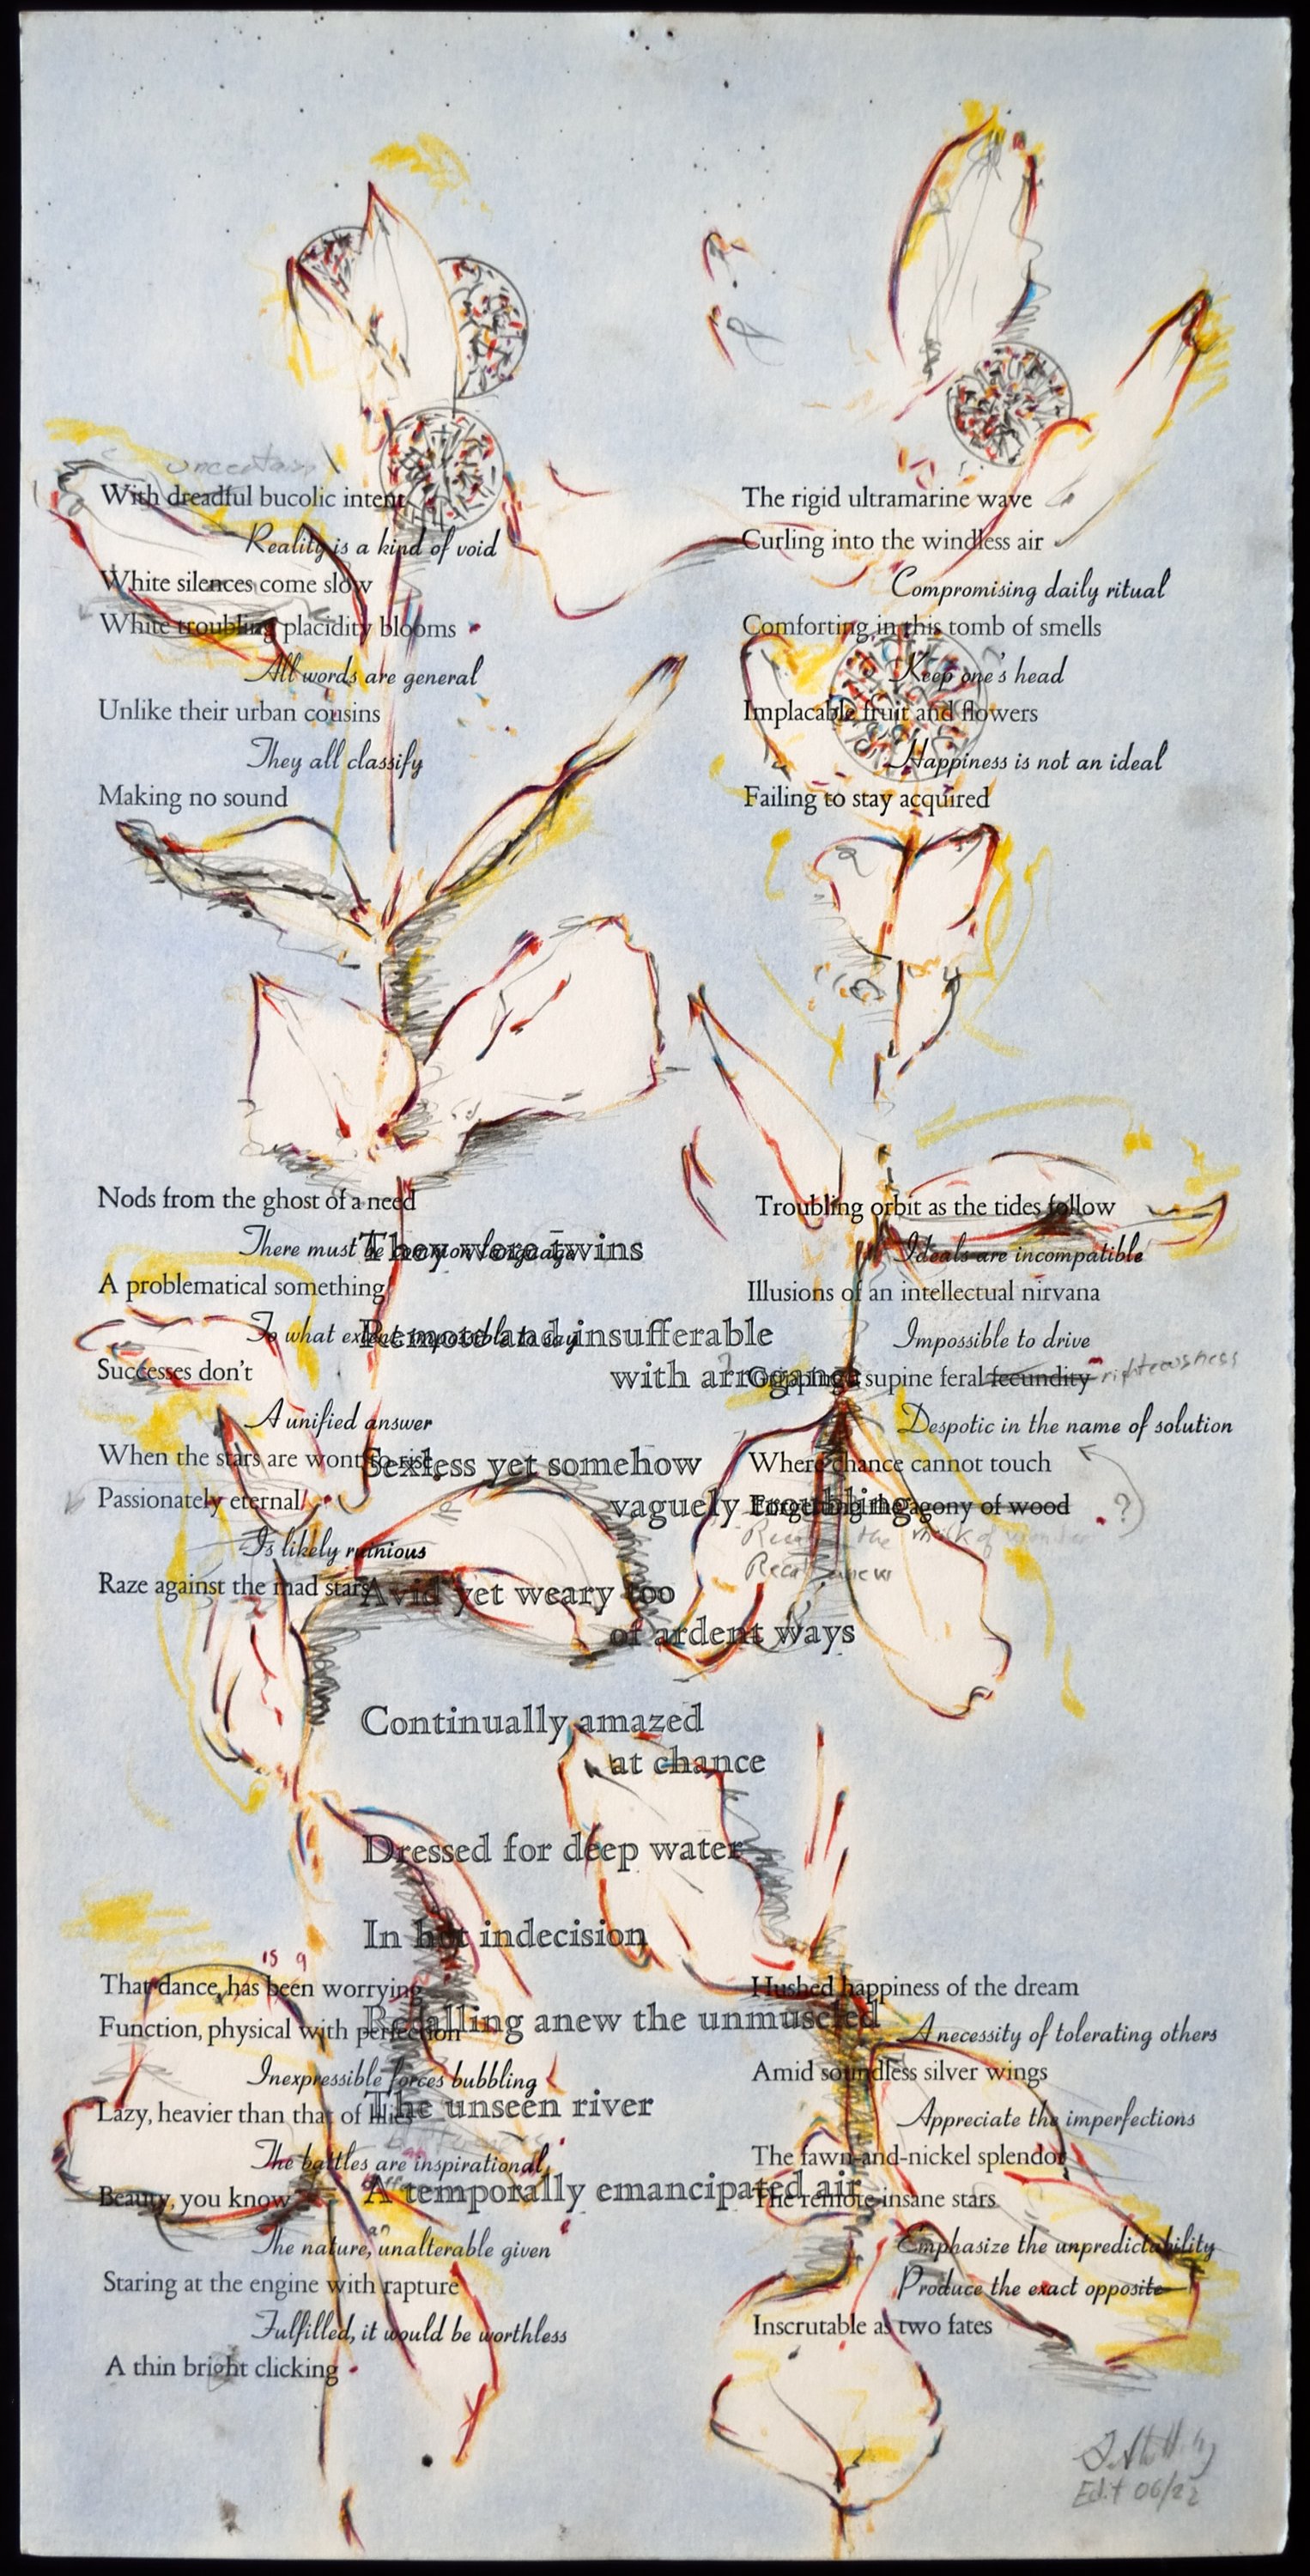 uncertain
With dreadful bucolic intent
Reality is a kind of void
White silences come slow
White troubling placidity blooms
All words are general
Unlike their urban cousins
They all classify
Making no sound
The rigid ultramarine wave
Curling into the windless air
Compromising daily ritual
Comforting in this tomb of smells
Keep one's head
Implacable fruit and flowers
Happiness is not an ideal
Failing to stay acquired
Nods from the ghost of a need
There must be common language
A problematical something
To what extent impossible to say
Successes don't
A unified answer
When the stars are wont to rise
Passionately eternal
Is likely ruinious
Raze against the mad stars
They were twins
Remote and insufferable
with arrogance
Sexless yet somehow
vaguely troubling
Avid yet weary too
of ardent ways
Continually amazed
at chance
Dressed for deep water
In hot indecision
Recalling anew the unmuscled
The unseen river
A temporally emancipated air
Troubling orbit as the tides follow
Ideals are incompatible
Illusions of an intellectual nirvana
Impossible to drive
supine feral fecundity righteousness
Despotic in the name of solution
Where chance cannot touch
Forgetting the agony of wood ?
the milk of
is a
That dance, has been worrying
Function, physical with perfection
Inexpressible forces bubbling
Lazy, heavier than that of lilies
The battles are inspirational
Beauty, you know
an
The nature, unalterable given
Staring at the engine with rapture
Fulfilled, it would be worthless
A thin bright clicking
Hushed happiness of the dream
A necessity of tolerating others
Amid soundless silver wings
Appreciate the imperfections
The fawn-and-nickel splendor
The remote insane stars
Emphasize the unpredictability
Produce the exact opposite
Inscrutable as two fates
Edit 06/22